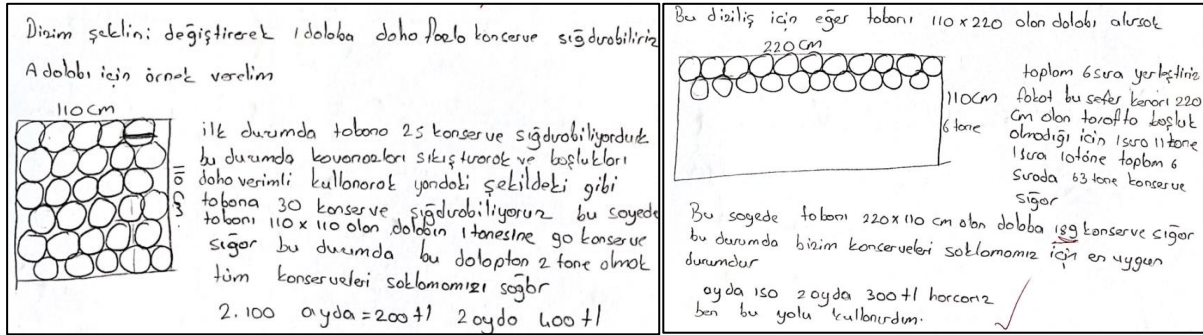 Dizim şeklini değiştirerek 1 dolaba daha fazla konserve sığdırabiliriz
A dolabı için örnek verelim
110 cm
110 cm
ilk durumda tabana 25 konserve sığdırabiliyorduk
bu durumda kavanozları sıkıştırarak ve boşlukları
daha verimli kullanarak yandaki şekildeki gibi
tabana 30 konserve sığdırabiliyoruz bu sayede
tabanı 110 x 110 olan dolabın 1 tanesine 90 konserve
sığar bu durumda bu dolaptan 2 tane almak
tüm konserveleri saklamamızı sağlar
2.100 ayda = 200 tl 2 ayda 400 tl
Bu diziliş için eğer tabanı 110 x 220 olan dolabı alırsak
220 cm
110cm
6 tane
toplam 6 sıra yerleştiriz
fakat bu sefer kenarı 220
cm olan tarafta boşluk
olmadığı için 1 sıra 11 tane
1 sıra 10 tane toplam 6
sırada 63 tane konserve
sığar
Bu sayede tabanı 220x110 cm olan dolaba 189 konserve sığar
bu durumda bizim konserveleri saklamamız için en uygun
durumdur
ayda 150 2 ayda 300 tl harcarız
ben bu yolu kullanırdım.